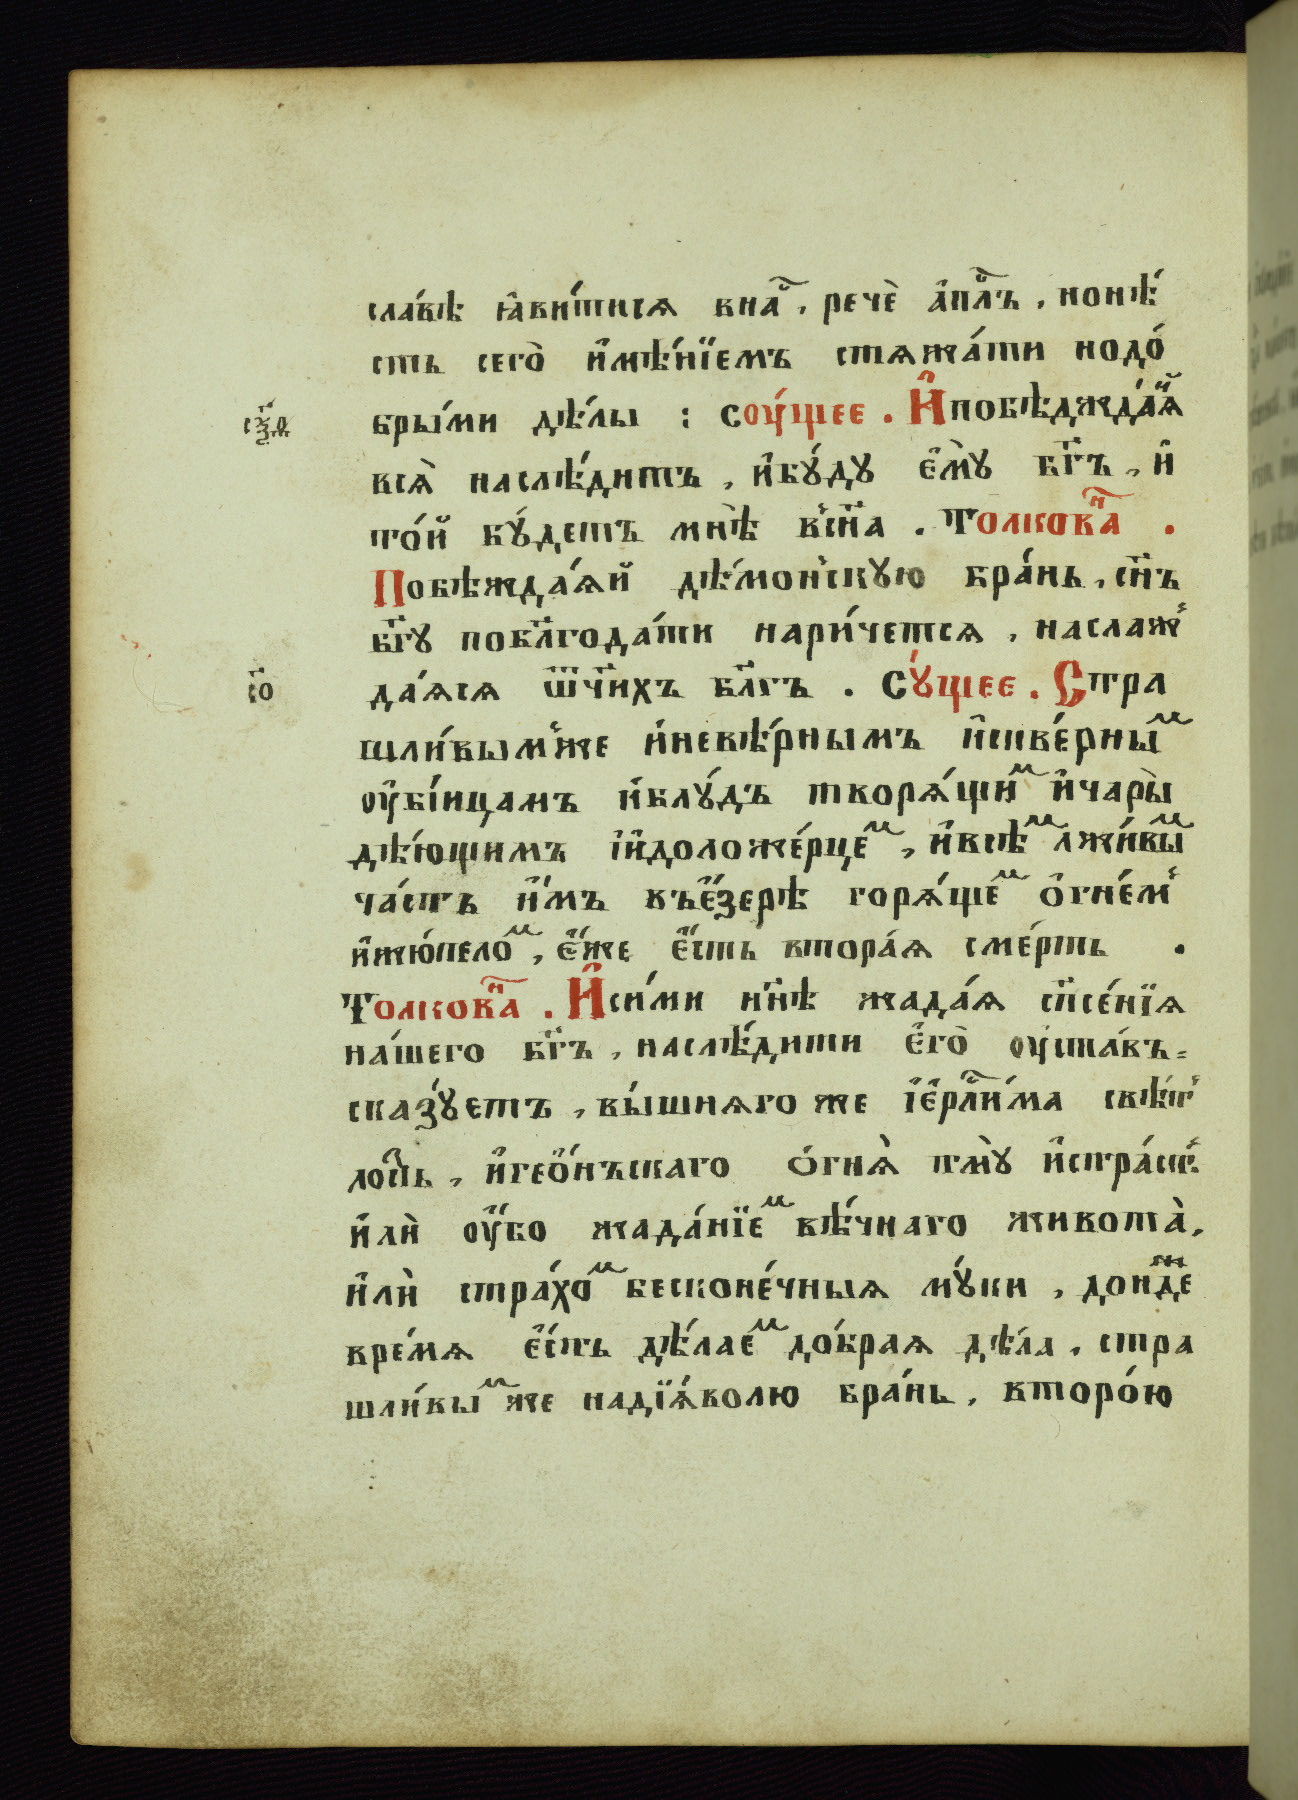 сла́вѣ ꙗ҆ви́тисѧ вна̑с, речѐ а҆пⷭ҇лъ, нонѣ́
сть сего̀ и҆мѣ́нїемъ стѧжа́ти нодо́
сѯ҃ѳ
бры́ми дѣ́лы : соу́щее. И҆побѣджда́ѧй
всѧ̀ наслѣ́дитъ, и҆бꙋ́дꙋ є҆мꙋ̀ бг҃ъ, и҆
то́й бꙋ́детъ мнѣ̀ всн҃а. толкова́ⷩ҇
Побѣжда́ѧй дѣ́монскꙋю бра́нь, сн҃ъ
бг҃ꙋ побл҃года́ти нари́четсѧ, наслаж
со҃
да́ѧсѧ ѿч҃ихъ бл҃гъ. сꙋ́щее. Стра
шли́вымже и҆невѣ́рнымъ и҆скве́рныⷨ
оу҆бі́ицамъ и҆блꙋ́дъ творѧ́щиⷨ и҆чары̀
дѣ́ющимъ і҆и҆доложе́рцеⷨ, и҆всѣⷨ лжи́выⷨ
ча́сть и҆́мъ въе҆́зерѣ горѧ́щеⷨ о҆гне́м
и҆жю́пелоⷨ, є҆́же є҆́сть втора́ѧ сме́рть .
Толкова́ⷩ҇. И҆си́ми нн҃ѣ жада́ѧ сп҃се́нїѧ
на́шего бг҃ъ, наслѣ́дити є҆го̀ оу҆ставъ=
сказꙋ́етъ, вы́шнѧго же і҆є҆рⷭ҇ли́ма свѣ́т
лость, и҆гео́нъскаго ѻ҆гнѧ̀ тмꙋ̀ и҆стра́сть
и҆лѝ оу҆́бо жада́нїеⷨ вѣ́чнаго живота̀,
и҆лѝ стра́хоⷨ бесконе́чныѧ мꙋ́ки, донⷣеже
вре́мѧ є҆́сть дѣ́лаеⷨ до́браѧ дѣ́ла. стра
шли́выⷨ же надїѧ́волю бра́нь, второ́ю